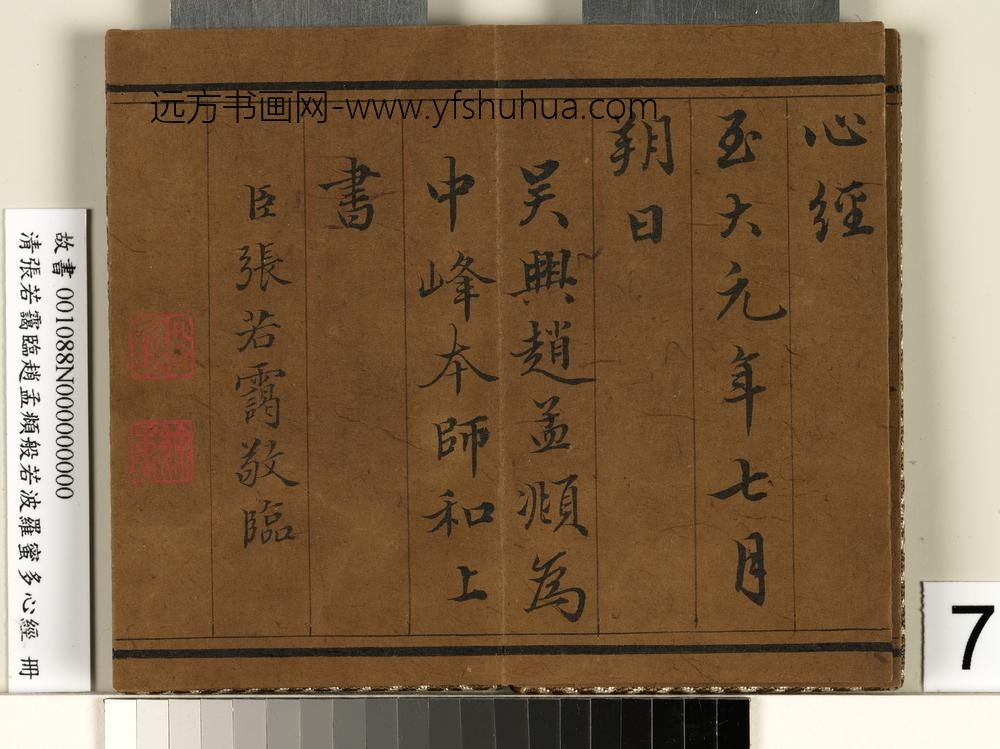 远方书画网-www.yfshuhua.com
心經
至大元年七月
朔日
吳興趙孟頫為
中峰本師和上
書
臣張若靄敬臨
故書 001088N000000000
清張若靄臨趙孟頫般若波羅蜜多心經 冊
7